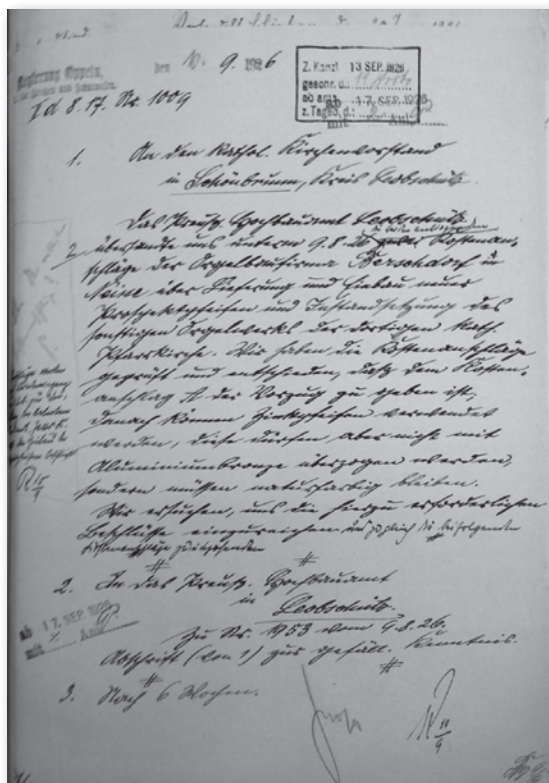 Regierung Oppeln,
den 10. 9. 1926
I d 8. 17. Nr. 1009
Z. Kanzl 13 SEP. 1926
geschr. d.:
ab am: 17. SEP. 1926
z. Tageb. d.:
mit Anl.
1. An den kathol. Kirchenvorstand
in Schönbrunn, Kreis Leobschütz.
Das Preuß. Hochbauamt Leobschütz
übersandte uns unterm 9.8.26 Kostenan-
schläge der Orgelbaufirma Berschdorf in
Neisse über Lieferung und Einbau neuer
Prospektpfeifen und Instandsetzung des
sonstigen Orgelwerks der dortigen kath.
Pfarrkirche. Wir haben die Kostenanschläge
geprüft und entschieden, daß dem Kosten-
anschlag A der Vorzug zu geben ist,
danach können Zinkpfeifen verwendet
werden, diese dürfen aber nicht mit
Aluminiumbronze überzogen werden,
sondern müssen naturfarbig bleiben.
Wir ersuchen, uns die hierzu erforderlichen
Beschlüsse einzureichen
2. An das Preuß. Hochbauamt
in
Leobschütz.
ab 17. SEP. 1926
mit Anl.
Zu Nr. 1953 vom 9.8.26.
Abschrift (von 1) zur gefäll. Kenntnis.
3. Nach 6 Wochen.